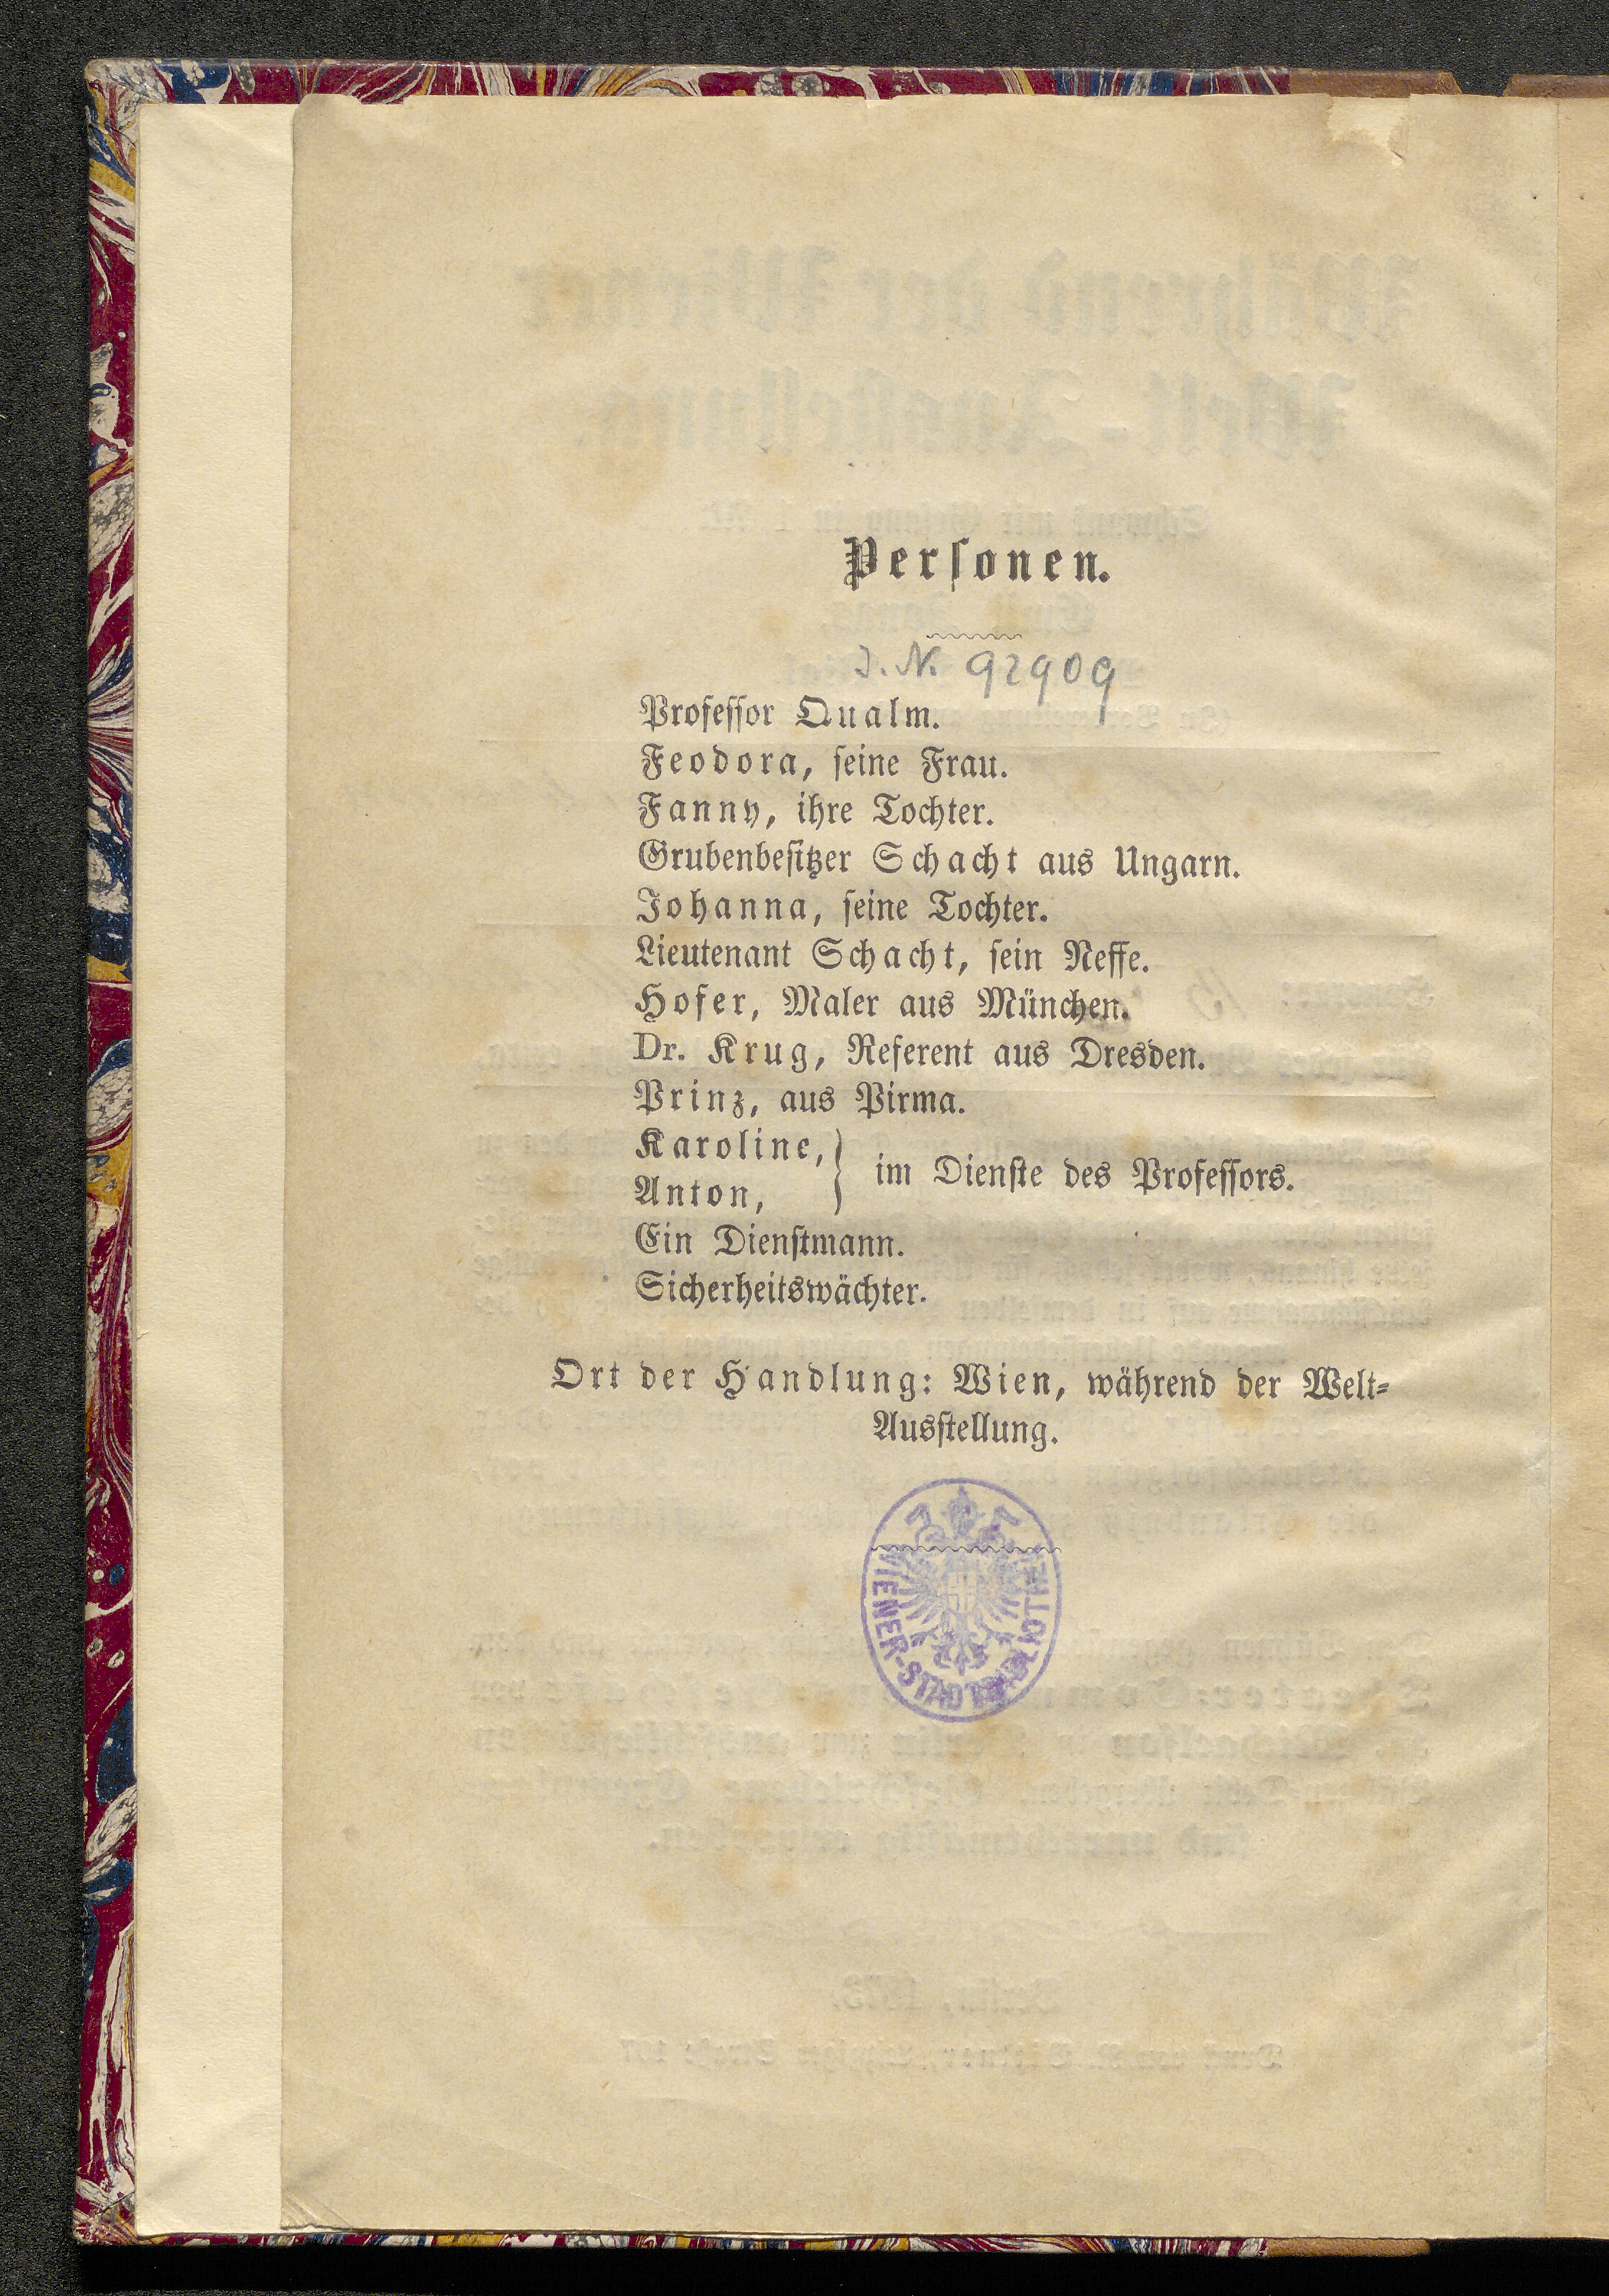 Personen.
J. N. 92909
Professor Qualm.
Feodora, seine Frau.
Fanny, ihre Tochter.
Grubenbesitzer Schacht aus Ungarn.
Johanna, seine Tochter.
Lieutenant Schacht, sein Neffe.
Hofer, Maler aus München.
Dr. Krug, Referent aus Dresden.
Prinz, aus Pirma.
Karoline,
Anton, } im Dienste des Professors.
Ein Dienstmann.
Sicherheitswächter.
Ort der Handlung: Wien, während der Welt-
Ausstellung.
WIENER-STADTBIBLIOTHEK